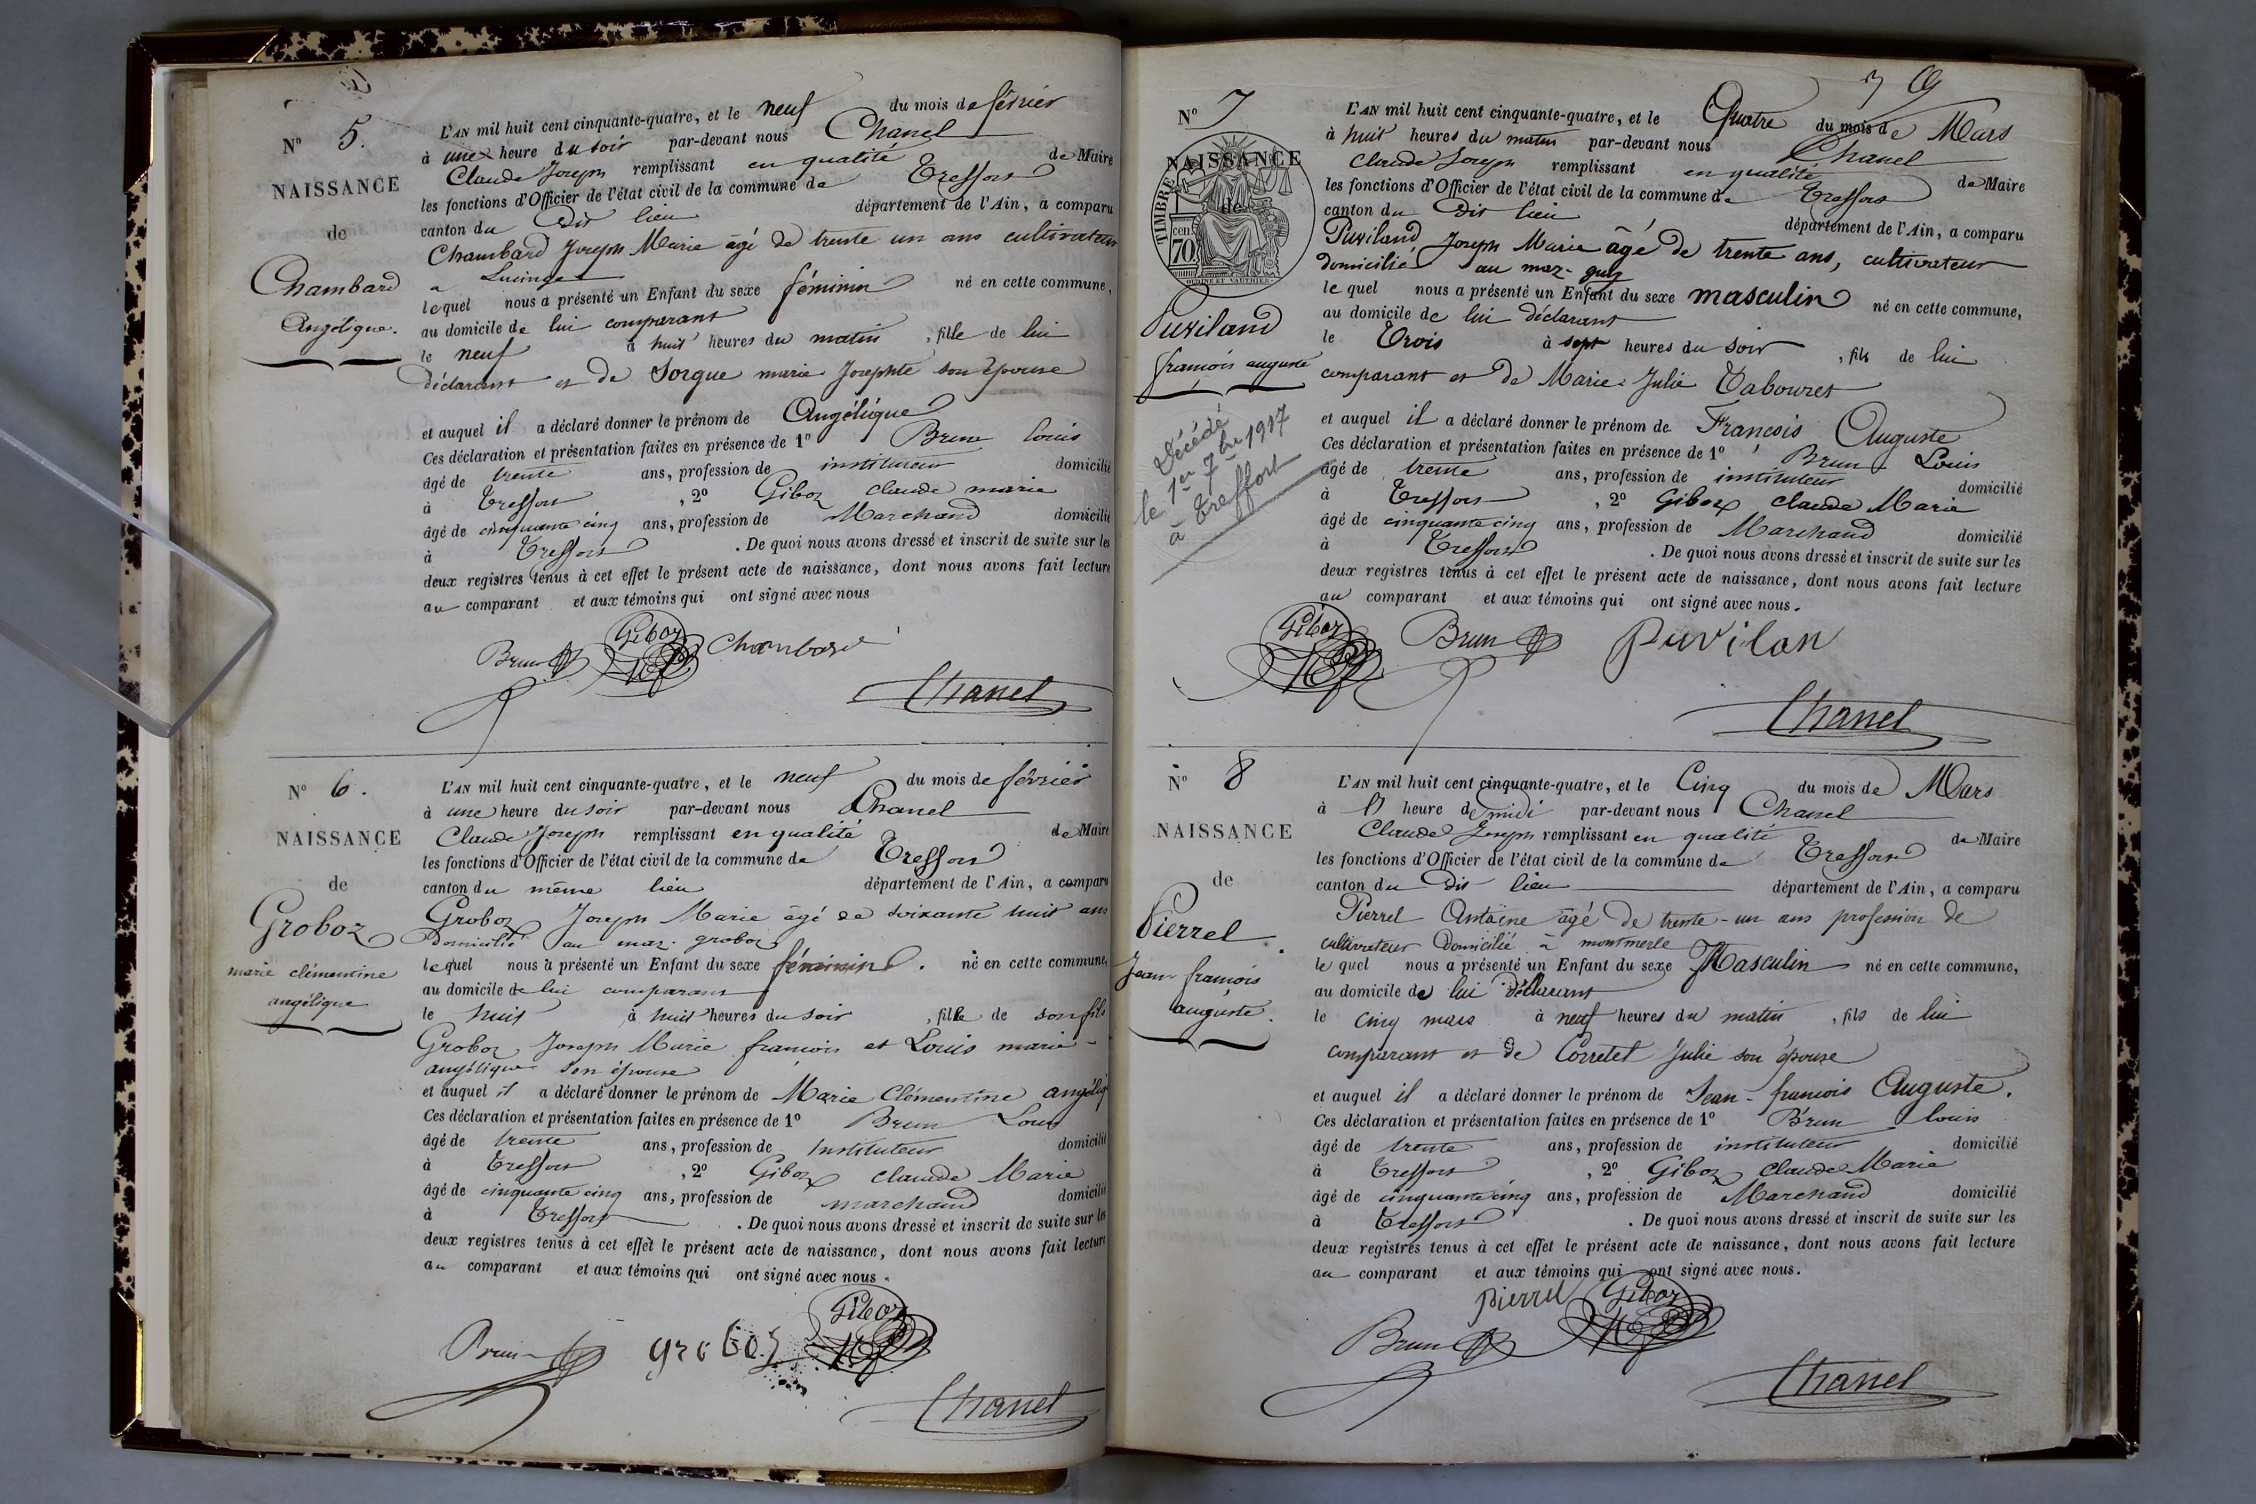 N° 5.
NAISSANCE
de
Chambard
Angélique.
L'AN mil huit cent cinquante-quatre, et le neuf du mois de février
à une heure du soir par-devant nous Chanel
Claude Joseph remplissant en qualité de Maire
les fonctions d'Officier de l'état civil de la commune de Treffort
canton du Dit lieu département de l'Ain, a comparu
Chambard Joseph Marie âgé de trente un ans cultivateur
a Lucinge
lequel nous a présenté un Enfant du sexe féminin né en cette commune,
au domicile de lui comparant
le neuf à huit heures du matin, fille de lui
déclarant et de Sorgue marie Josephte son épouse
et auquel il a déclaré donner le prénom de Angélique
Ces déclaration et présentation faites en présence de 1° Brun Louis
âgé de trente ans, profession de instituteur domicilié
à Treffort, 2° Giboz claude marie
âgé de cinquante cinq ans, profession de Marchand domicilié
à Treffort. De quoi nous avons dressé et inscrit de suite sur les
deux registres tenus à cet effet le présent acte de naissance, dont nous avons fait lecture
au comparant et aux témoins qui ont signé avec nous
Brun Giboz Chambard
Chanel
N° 6.
NAISSANCE
de
Groboz
marie clémentine
angélique
L'AN mil huit cent cinquante-quatre, et le neuf du mois de février
à une heure du soir par-devant nous Chanel
Claude Joseph remplissant en qualité de Maire
les fonctions d'Officier de l'état civil de la commune de Treffort
canton du même lieu département de l'Ain, a comparu
Groboz Joseph Marie âgé de soixante huit ans
domicilié au maz. groboz
lequel nous a présenté un Enfant du sexe féminin. né en cette commune,
au domicile de lui comparant
le huit à huit heures du soir, fille de son fils
Groboz Joseph Marie francois et Louis marie-
angélique son épouse
et auquel il a déclaré donner le prénom de Marie Clémentine angéliq
Ces déclaration et présentation faites en présence de 1° Brun Louis
âgé de trente ans, profession de Instituteur domicilié
à Treffort, 2° Giboz claude Marie
âgé de cinquante cinq ans, profession de marchand domicilié
à Treffort. De quoi nous avons dressé et inscrit de suite sur les
deux registres tenus à cet effet le présent acte de naissance, dont nous avons fait lecture
au comparant et aux témoins qui ont signé avec nous.
Brun groboz Giboz
Chanel
N° 7
NAISSANCE
de
TIMBRE
cen
70
Puviland
francois auguste
Décédé
le 1er 7bre 1917
à Treffort
L'AN mil huit cent cinquante-quatre, et le Quatre du mois de Mars
à huit heures du matin par-devant nous Chanel
Claude Joseph remplissant en qualité de Maire
les fonctions d'Officier de l'état civil de la commune de Treffort
canton du Dit lieu département de l'Ain, a comparu
Puviland Joseph Marie âgé de trente ans, cultivateur
domicilié au maz-guy
le quel nous a présenté un Enfant du sexe masculin né en cette commune,
au domicile de lui déclarant
le Trois à sept heures du soir, fils de lui
comparant et de Marie-Julie Tabouret
et auquel il a déclaré donner le prénom de Francois Auguste
Ces déclaration et présentation faites en présence de 1° Brun Louis
âgé de trente ans, profession de instituteur domicilié
à Treffort, 2° Giboz claude Marie
âgé de cinquante cinq ans, profession de Marchand domicilié
à Treffort. De quoi nous avons dressé et inscrit de suite sur les
deux registres tenus à cet effet le présent acte de naissance, dont nous avons fait lecture
au comparant et aux témoins qui ont signé avec nous.
Giboz Brun puvilan
Chanel
N° 8
NAISSANCE
de
Pierrel
Jean francois
auguste.
L'AN mil huit cent cinquante-quatre, et le Cinq du mois de Mars
à heure de midi par-devant nous Chanel
Claude Joseph remplissant en qualité de Maire
les fonctions d'Officier de l'état civil de la commune de Treffort
canton du Dit lieu département de l'Ain, a comparu
Pierrel Antoine âgé de trente-un ans profession de
cultivateur domicilié à montmerle
le quel nous a présenté un Enfant du sexe Masculin né en cette commune,
au domicile de lui déclarant
le cinq mars à neuf heures du matin, fils de lui
comparant et de Corretel Julie son épouse
et auquel il a déclaré donner le prénom de Jean-francois Auguste.
Ces déclaration et présentation faites en présence de 1° Brun louis
âgé de trente ans, profession de instituteur domicilié
à Treffort, 2° Giboz Claude Marie
âgé de cinquante cinq ans, profession de Marchand domicilié
à Treffort. De quoi nous avons dressé et inscrit de suite sur les
deux registres tenus à cet effet le présent acte de naissance, dont nous avons fait lecture
au comparant et aux témoins qui ont signé avec nous.
pierrel Giboz
Brun
Chanel